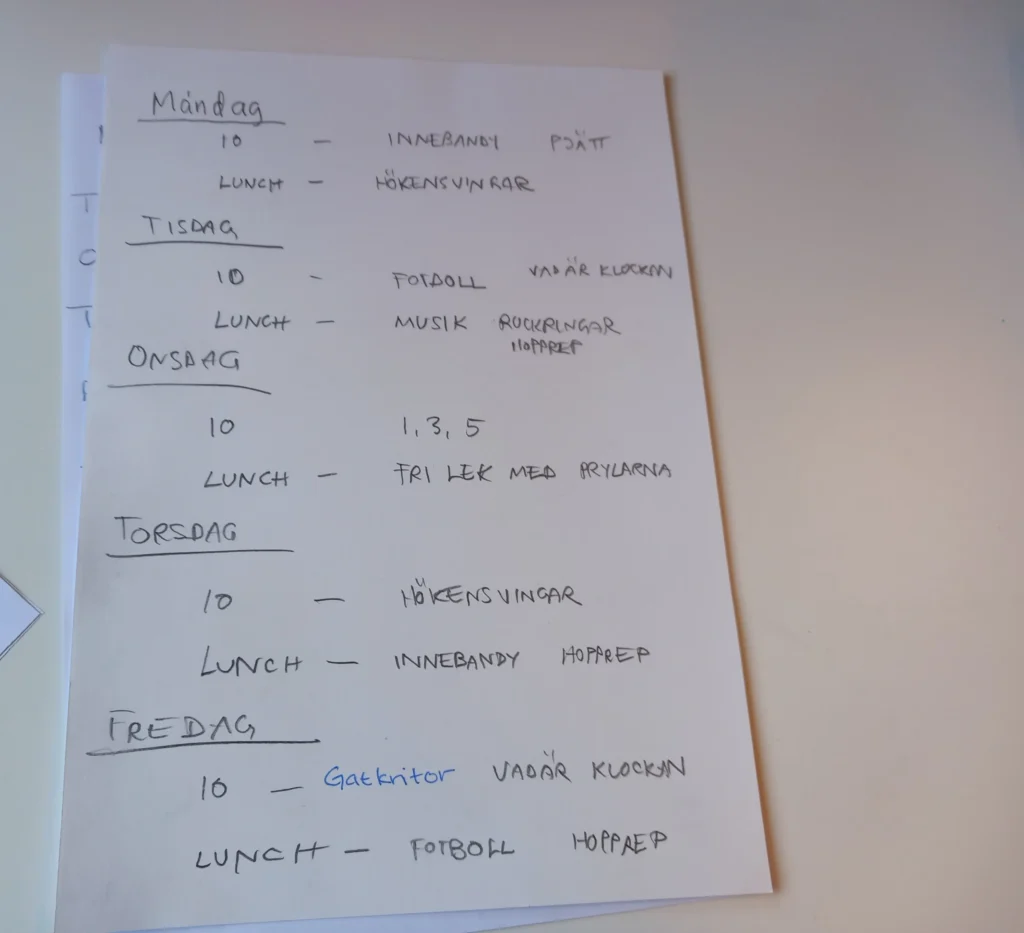 Måndag
10 — INNEBANDY PJÄTT
LUNCH — HÖKENSVINGAR
TISDAG
10 - FOTBOLL VADÄR KLOCKAN
LUNCH — MUSIK ROCKRINGAR
HOPPREP
ONSDAG
10 1, 3, 5
LUNCH — FRI LEK MED PRYLARNA
TORSDAG
10 — HÖKENSVINGAR
LUNCH — INNEBANDY HOPPREP
FREDAG
10 — Gatkritor VADÄR KLOCKAN
LUNCH — FOTBOLL HOPPREP